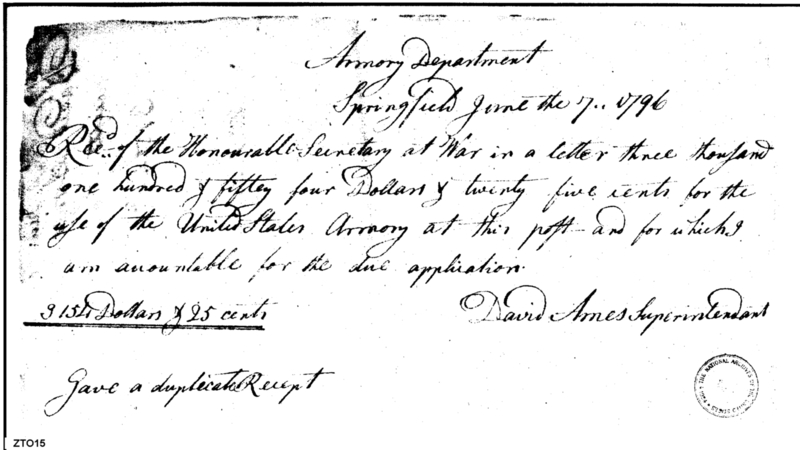 Armory Department
Springfield June the 7.. 1796
Recd. of the Honourable Secretary at War in a letter three thousand
one hundred & fifty four Dollars & twenty five cents for the
use of the United States Armory at this post - and for which I
am accountable for the due application.
3154 Dollars & 25 cents
David Ames Superintendant
Gave a duplicate Receipt
THE NATIONAL ARCHIVES OF THE UNITED STATES
ZTO15